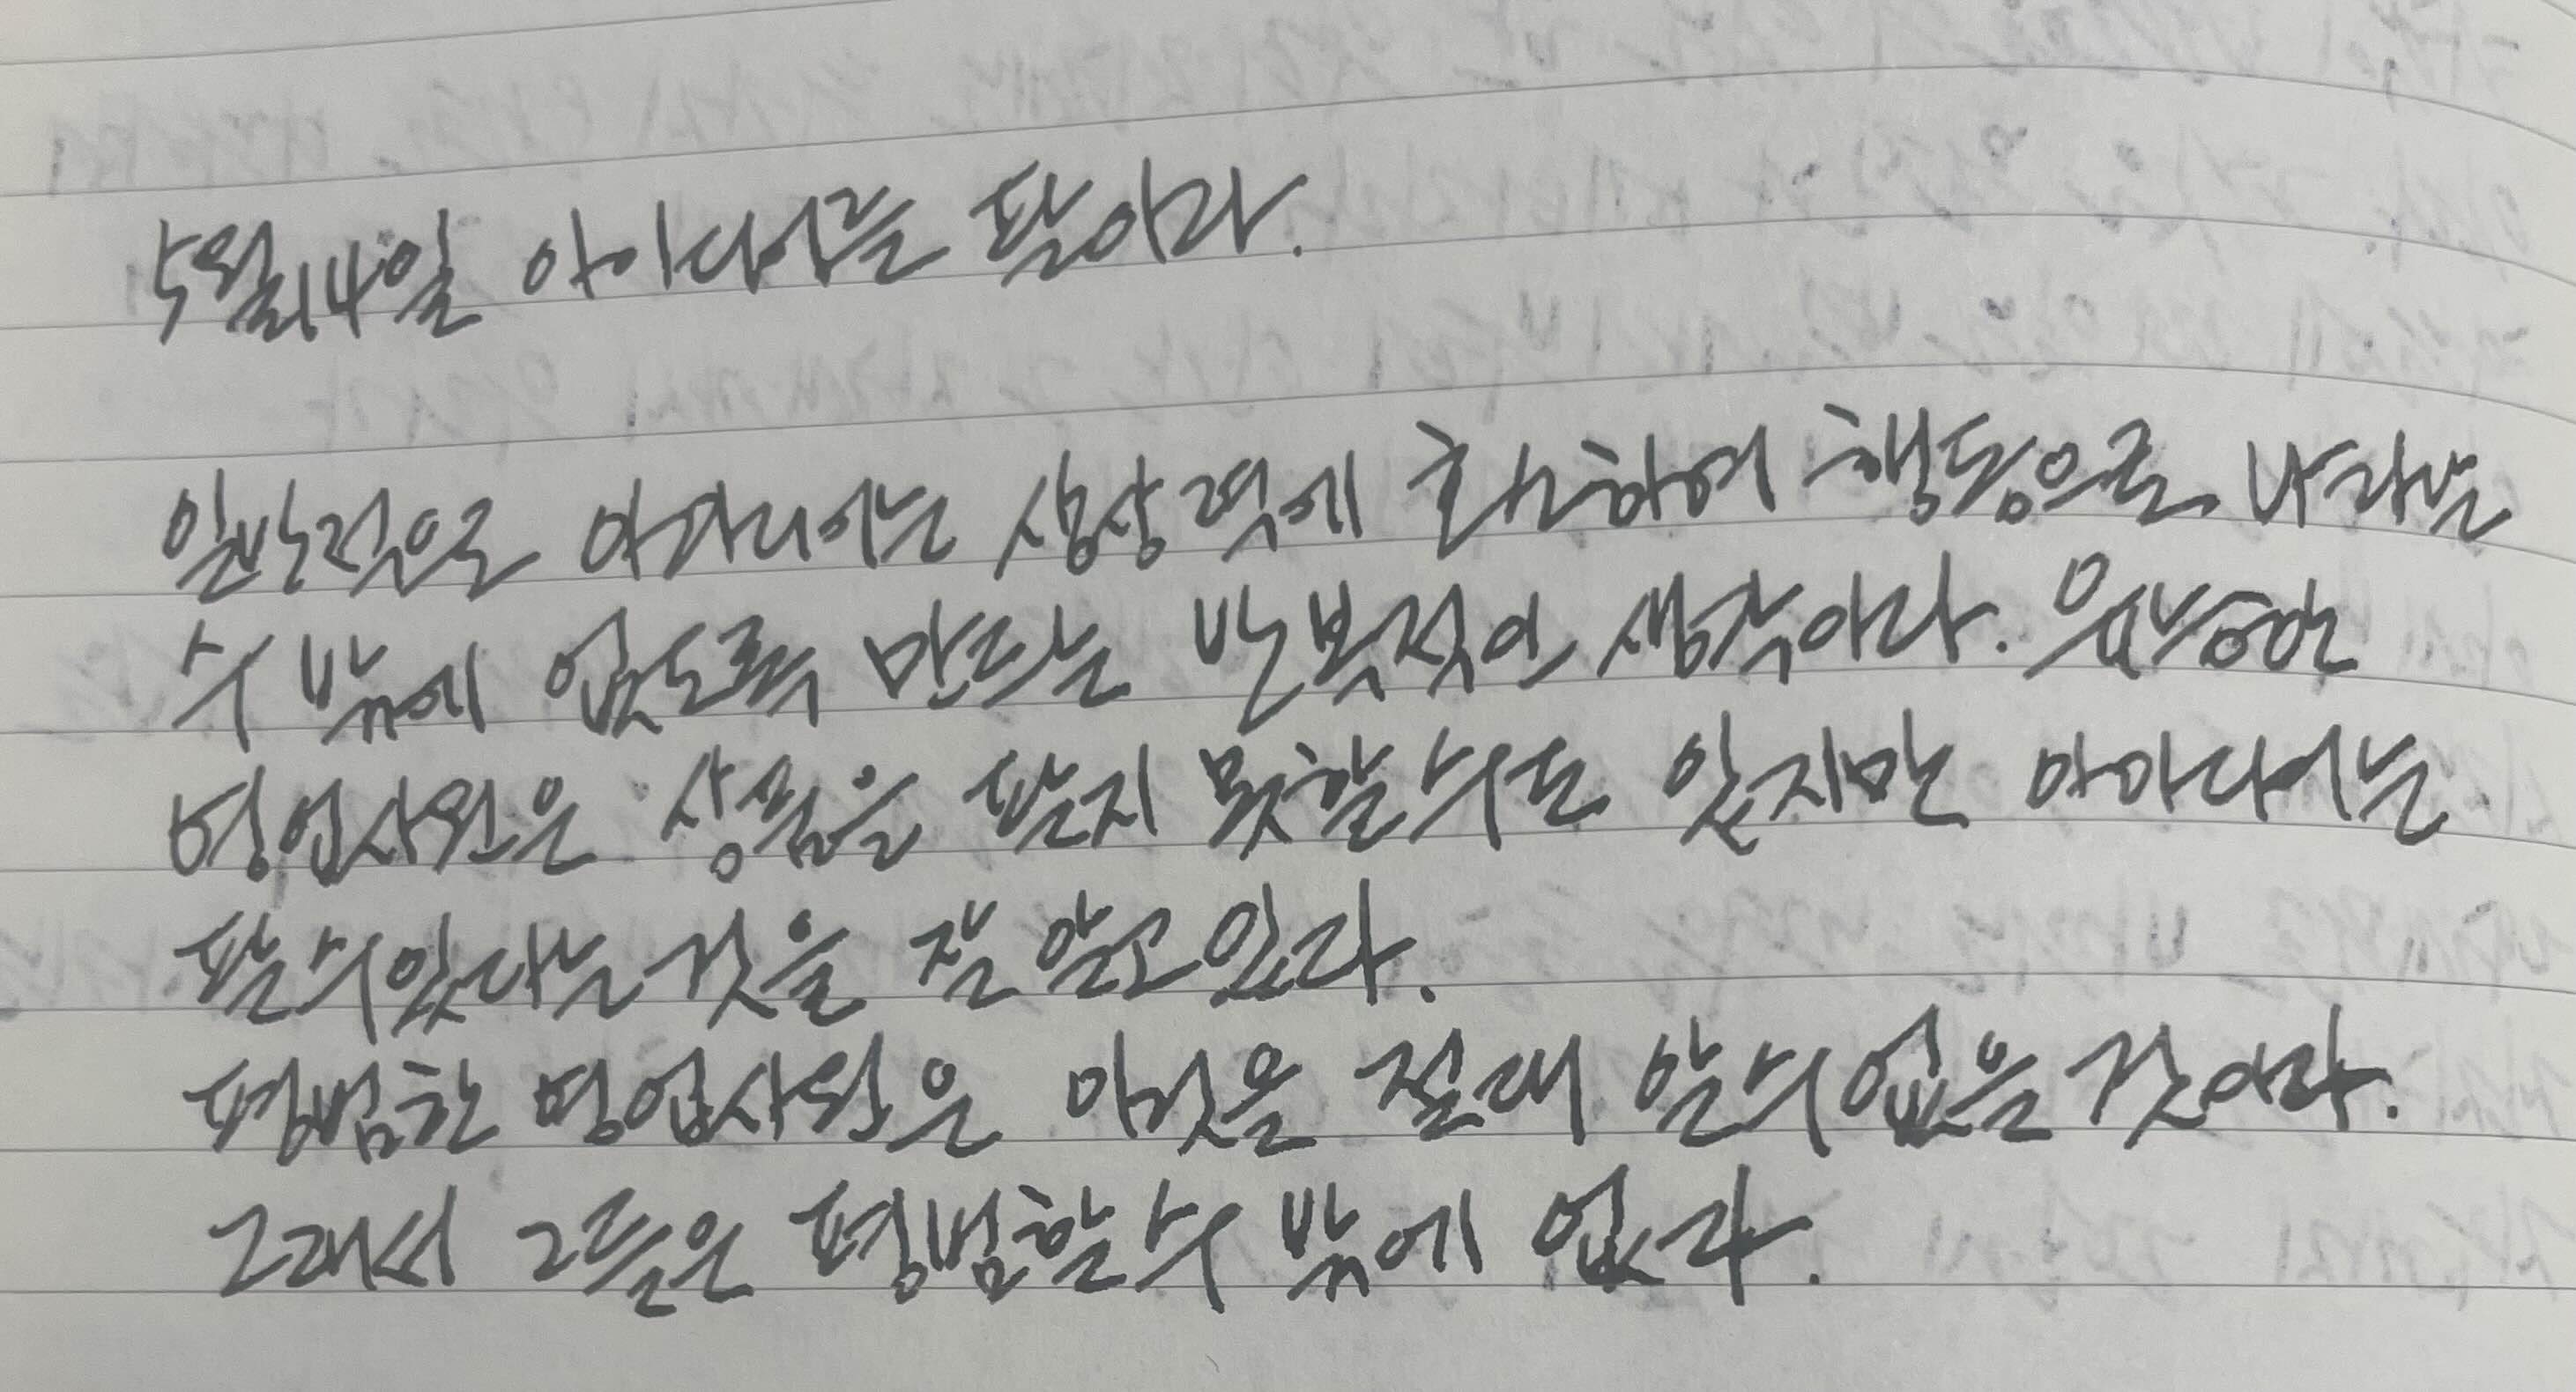 5월14일 아이디어를 팔아라.
일반적으로 아이디어는 상상력에 호소하여 행동으로 나타날
수 밖에 없도록 만드는 반복적인 생각이라. 유능한
영업사원은 상품을 팔지 못할 수도 있지만 아이디어는
팔 수 있다는 것을 잘 알고 있다.
평범한 영업사원은 이것을 절대 알 수 없을 것이다.
그래서 그들은 평범할 수 밖에 없다.